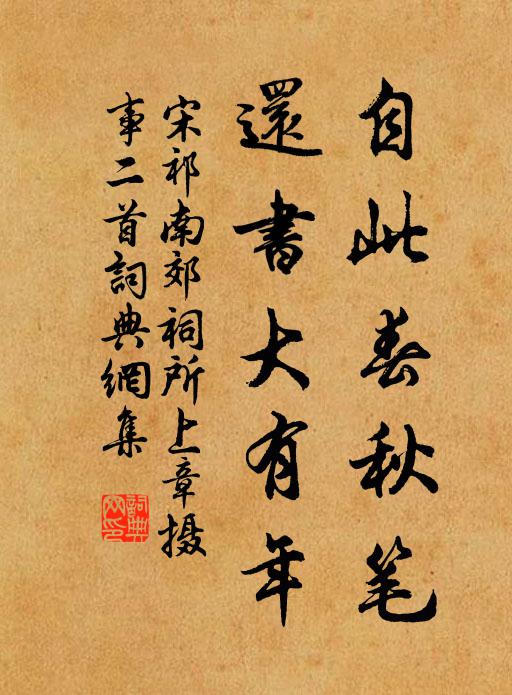 自此春秋笔
還書大有年
宋祁南郊祠所上章摄
事二首詞典網集
詞典网印